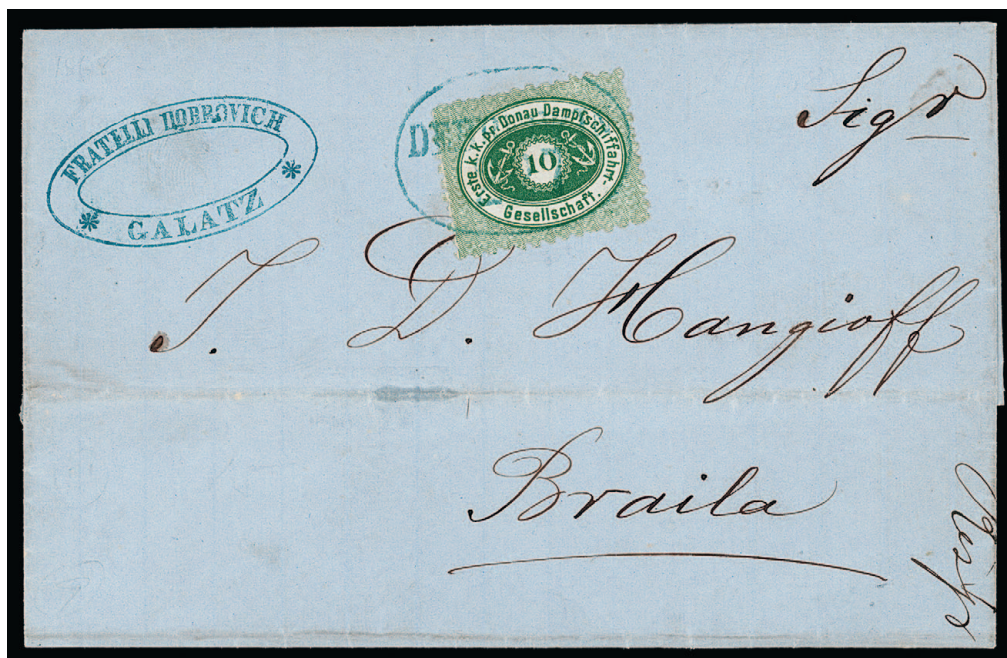 1868
Sigr
FRATELLI DOBROVICH
GALATZ
Erste K.K. pr. Donau-Dampfschiffahrt-
Gesellschaft.
10
J. D. Hangioff
Braila